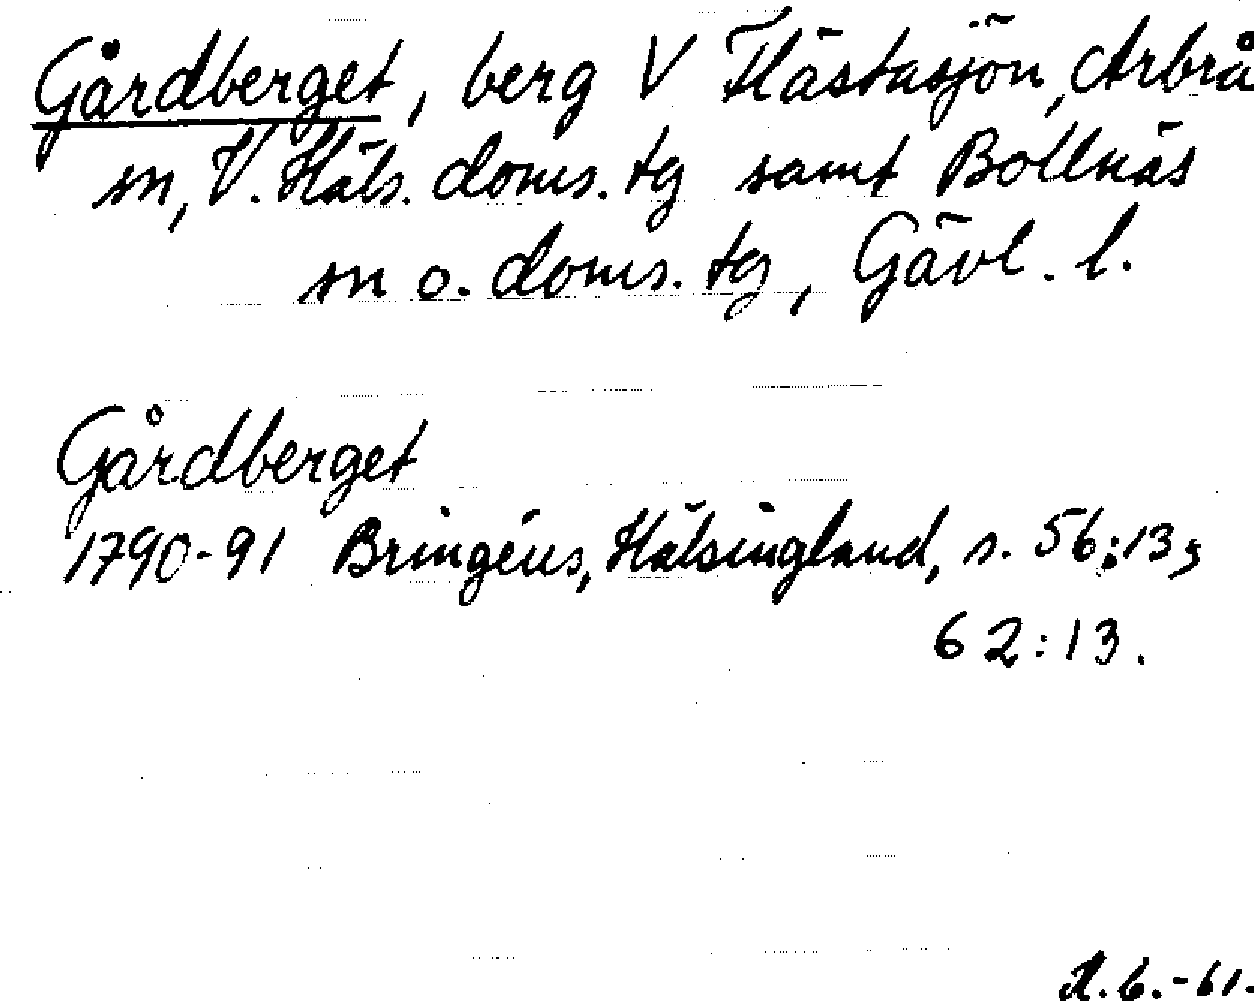 Gårdberget, berg V Flästasjön, Arbrå
sn, V. Häls. doms. tg samt Bollnäs
sn o. doms. tg, Gävl. l.
Gårdberget
1790-91 Bringéus, Hälsingland, s. 56:13;
62:13.